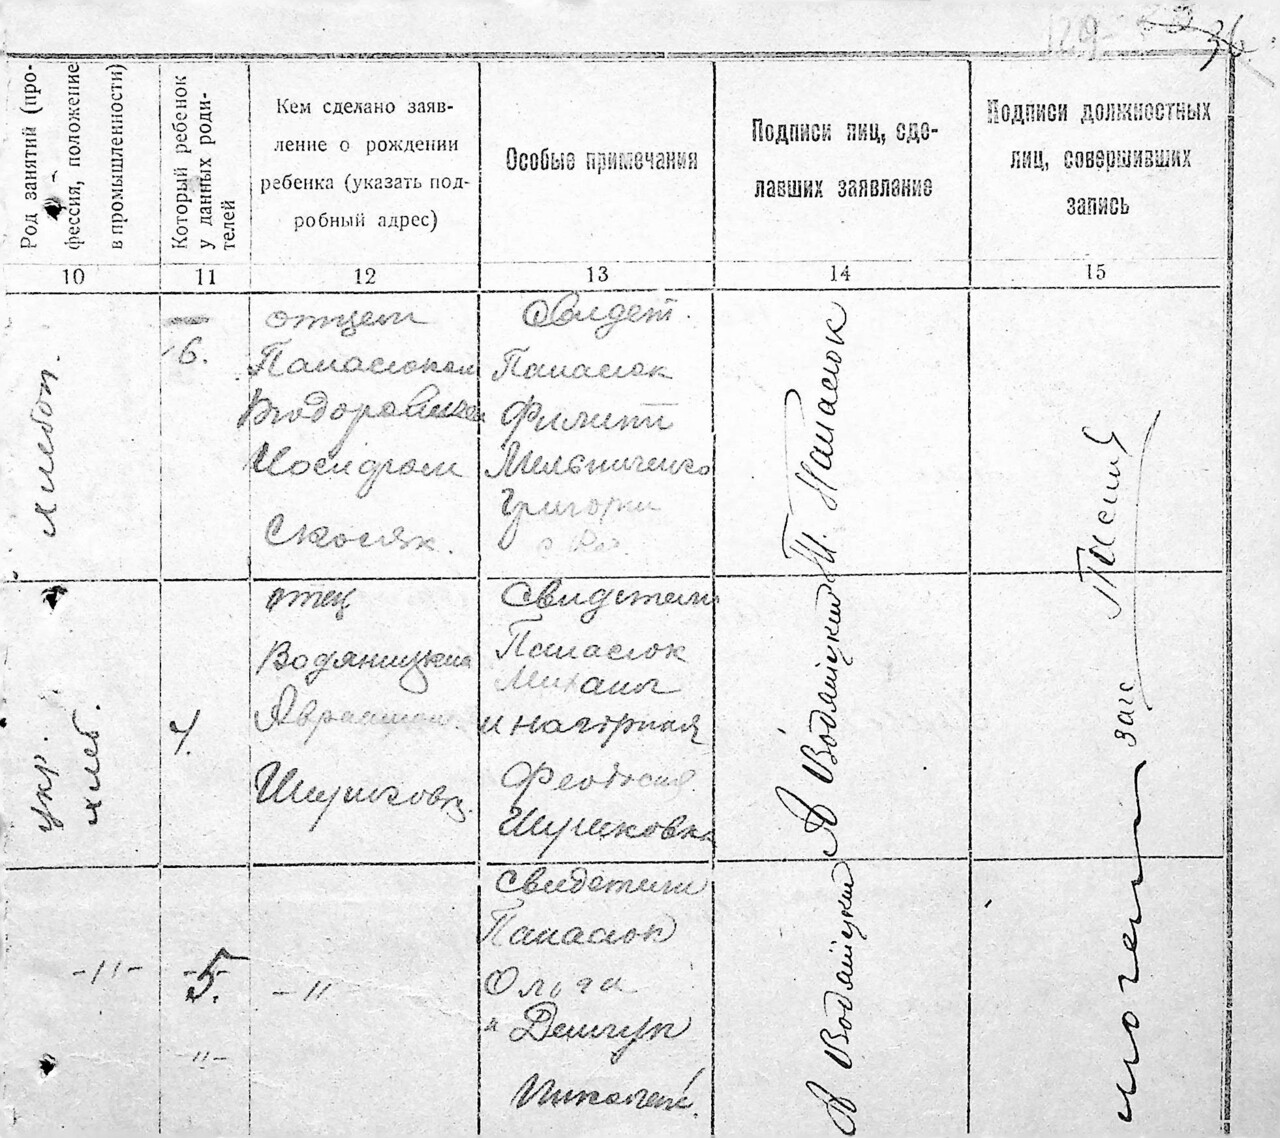 129
36
Род занятий (про-
фессия, положение
в промышленности)
Который ребенок
у данных роди-
телей
Кем сделано заяв-
ление о рождении
ребенка (указать под-
робный адрес)
Особые примечания
Подписи лиц, сде-
лавших заявление
Подписи должностных
лиц, совершивших
запись
10
11
12
13
14
15
хлебоп.
6.
отцем
Панасюком
Скосяк.
Свидет.
Панасюк
Филипп
Мельниченко
Григорий
Т. Панасюк
укр.
хлеб.
4.
отец
Водяницкий
Свидетели
Панасюк
Михаил
и Нагорная
Феодосия
Шушковка
А Водяицкий
загс
-"-
5.
-"
"-
Свидетели
Панасюк
Ольга
и Демчук
Николай
А Водяицкий